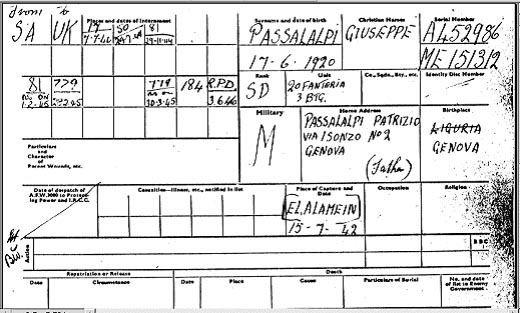 From to
Places and dates of Internment
Surname and date of birth
Christian Names
Serial Number
SA UK 17 50 81
7-7-42
PASSALALPI GIUSEPPE A452986
17-6-1920 ME151312
Rank
Unit
Co., Sqdn., Bty., etc.
Identity Disc Number
SD 20 FANTERIA
3 BTG.
81 779 779 184 R.P.D.
1-2-45 10-3-45 3.6.46
Military
Home Address
Birthplace
M
PASSALALPI PATRIZIO
VIA ISONZO No 2
GENOVA
(Father)
LIGURIA
GENOVA
Particulars
and
Character
of
Parent Wounds, etc.
Date of despatch of
A.F.W.3000 to Protecting
Power and I.R.C.C.
Casualties—Illness, etc., notified in list
Place of Capture and
Date
Occupation
Religion
EL ALAMEIN
15-7-42
Action
Repatriation or Release
Death
Date
Circumstance
Date
Place
Cause
Particulars of Burial
No. and date
of list to Enemy
Government.